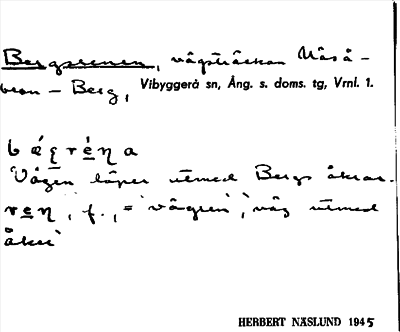 Bergsrenen, vägsträckan Näså-
bron – Berg, Vibyggerå sn, Ång. s. doms. tg, Vrnl. 1.
bǽrg̨réna
Vägen löper utmed Bergs åkrar.
ren, f., = 'vägren', 'väg utmed
åker'
HERBERT NÄSLUND 1945